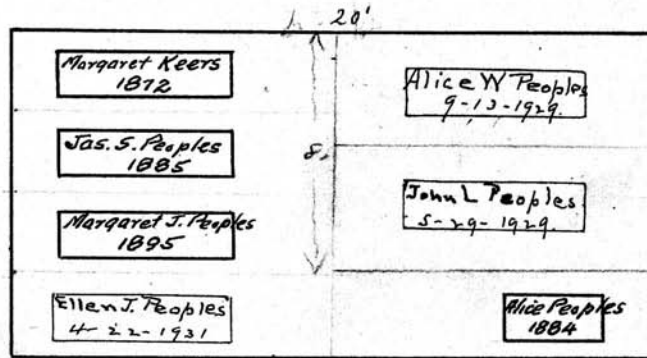 20'
Margaret Keers
1872
Jas. S. Peoples
1885
Margaret J. Peoples
1895
Ellen J. Peoples
4-22-1931
8
Alice W Peoples
9-13-1929.
John L Peoples
5-29-1929.
Alice Peoples
1884